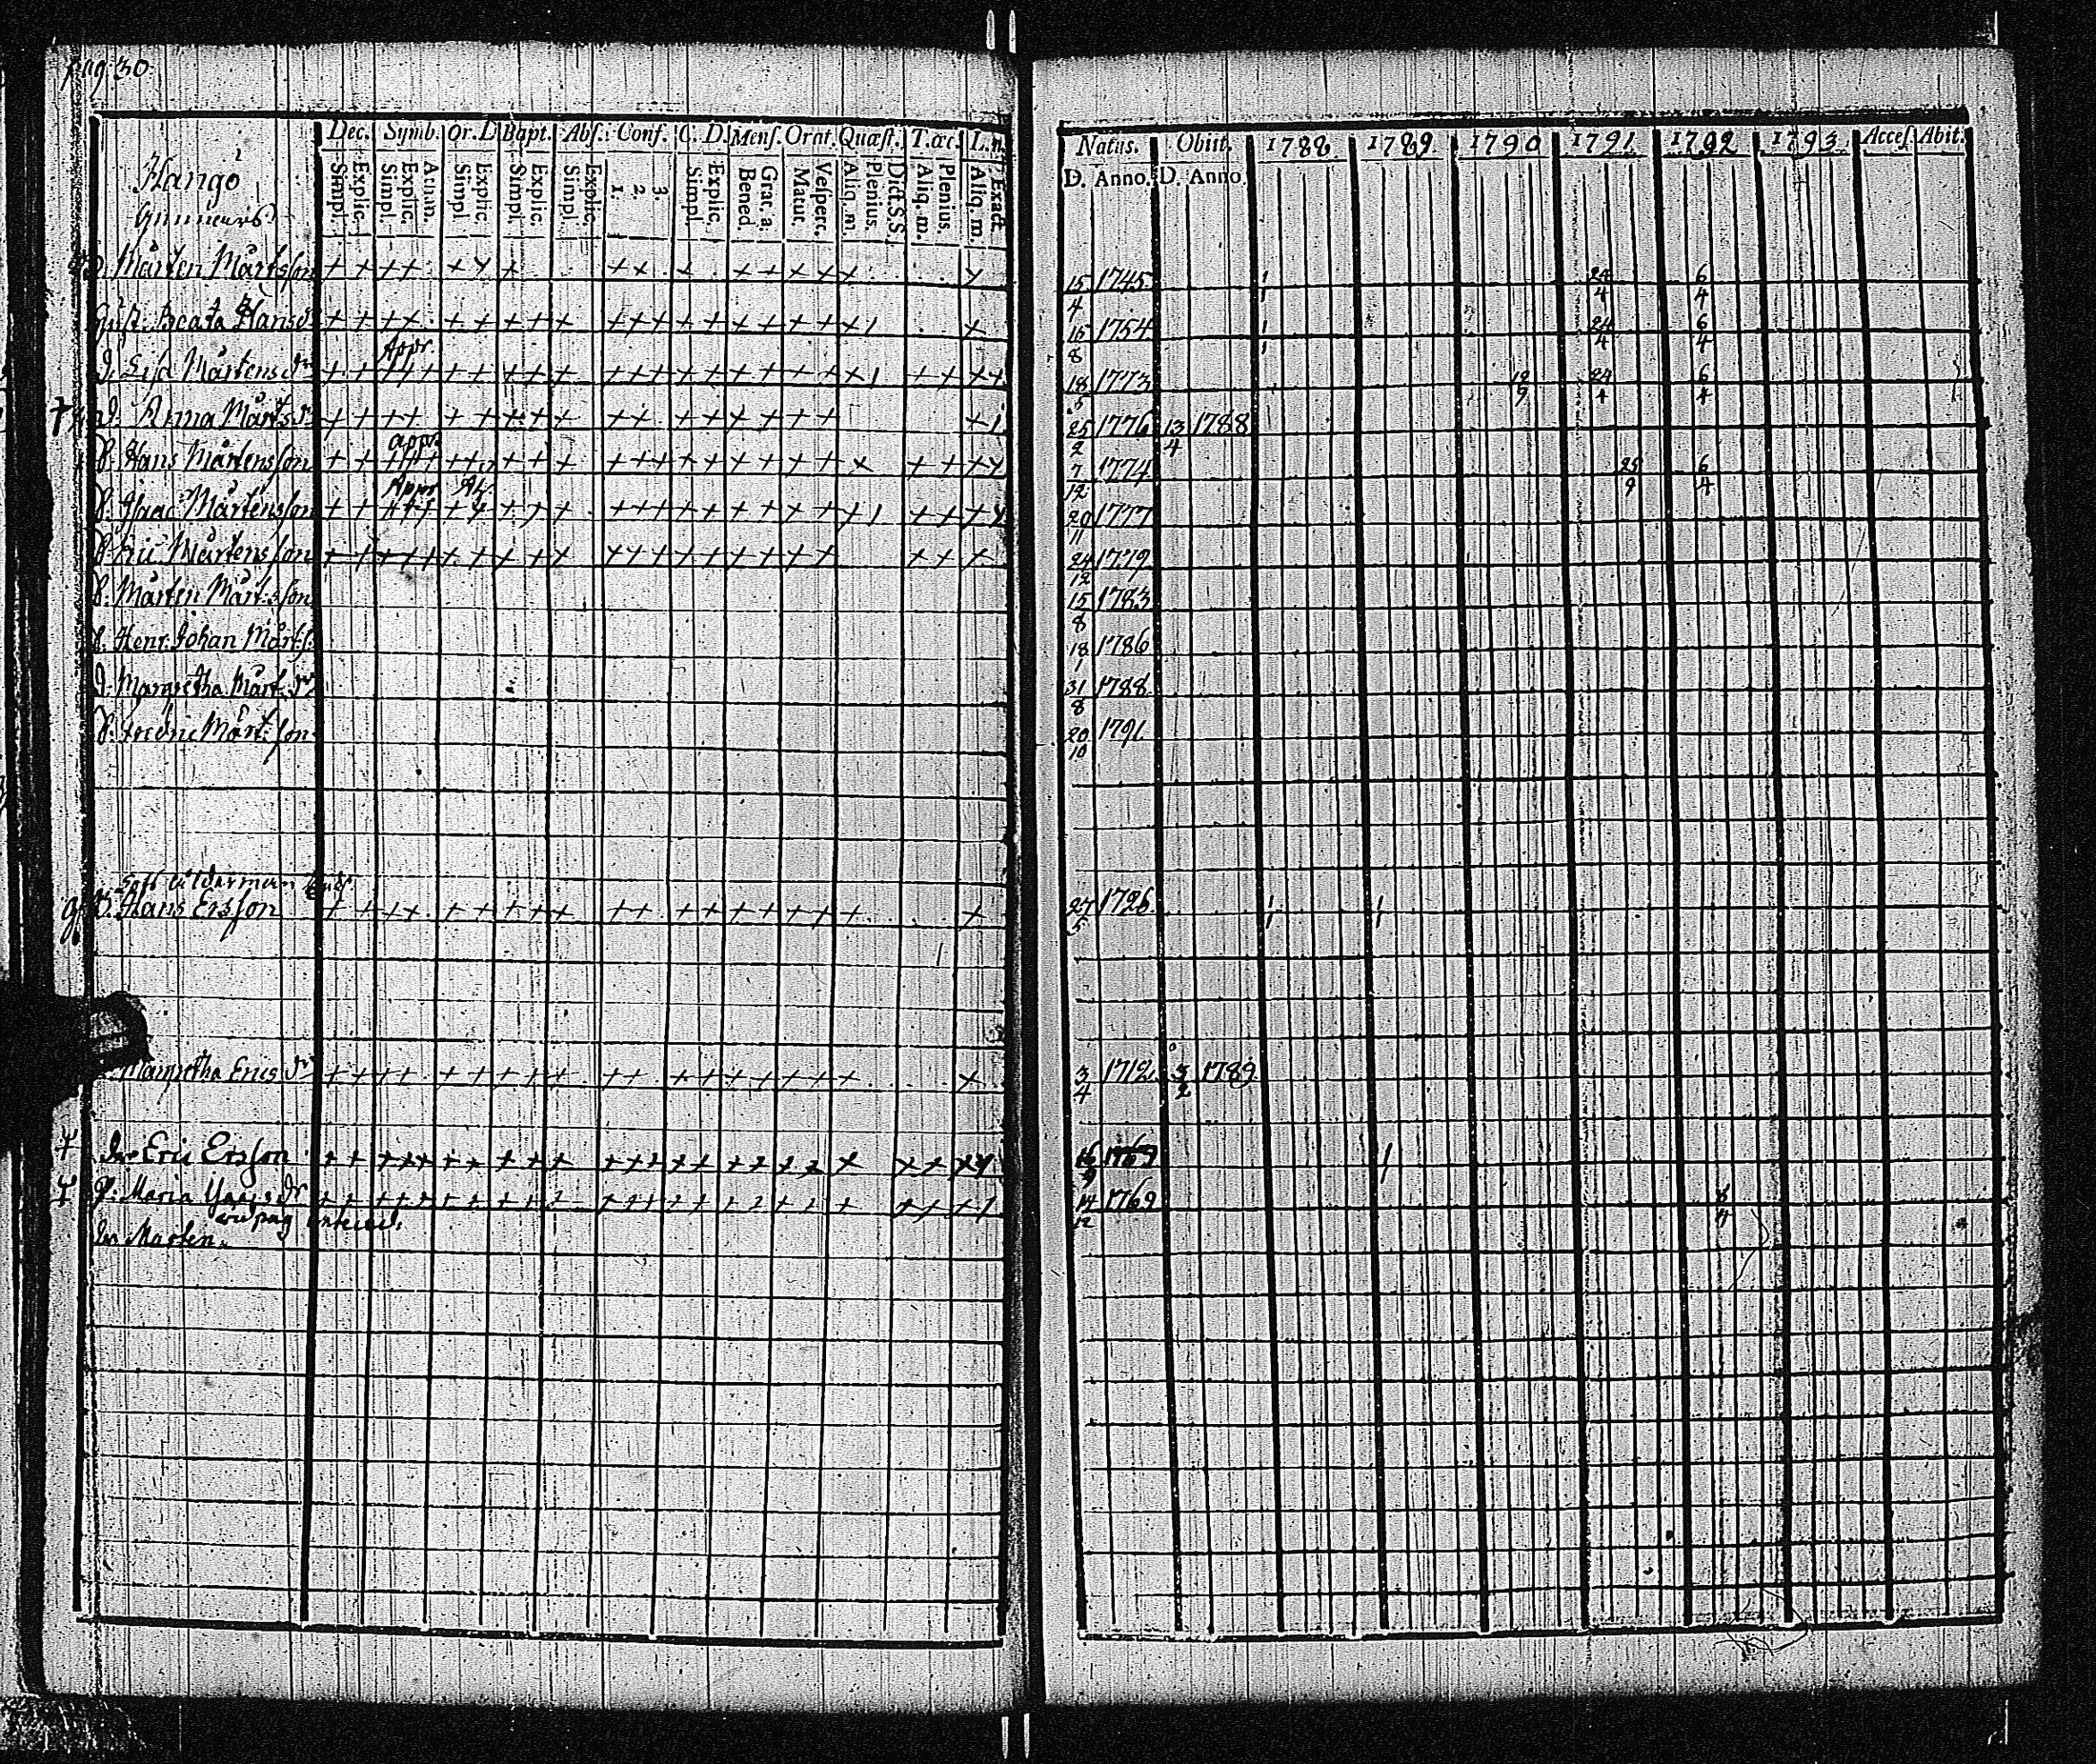 pag 30
Dec. Symb. Or. D Bapt. Abſ. Conf. C. D. Menſ. Orat. Quæſt. T. œc. L. n.
Simpl. Explic. Simpl. Explic. Athan. Simpl. Explic. Simpl. Explic. Simpl. Explic. 1. 2. 3. Simpl. Explic. Bened. Grat. a. Matut. Veſpert. Aliq. m. Plenius. Dict. S.S. Aliq. m. Plenius. Aliq. m. Exact.
Natus. Obiit. 1788 1789 1790 1791 1792 1793 Acceſ. Abit.
D. Anno. D. Anno.
Hangö
Mårten Mårtsſon 15/4 1745 1/1 24/4 6/4
Hust. Beata Hansdr 16/8 1754 1/1 24/4 6/4
Appr.
D. Lisa Mårtensdr 18/5 1773 19/9 24/4 6/4
D. Anna Mårtsdr 25/2 1776 13/4 1788
appr.
S. Hans Mårtensſon 7/12 1774 25/9 6/4
Appr.
S. Isaac Mårtensſon 20/11 1777
S. Eric Mårtensſon 24/12 1779
S. Mårten Mårtsſon 15/8 1783
S. Henr. Johan Mårts. 18/1 1786
D. Margretha Mårt. dr 31/8 1788
S. Fredric Mårt. ſon 20/10 1791
Hans Ersſon 27/5 1726 1/1 1/1
Margretha Ericsdr 3/4 1712 5/2 1789
Dr. Eric Ersſon 16/9 1769
H. Maria 14/12 1769
Dr. Mårten